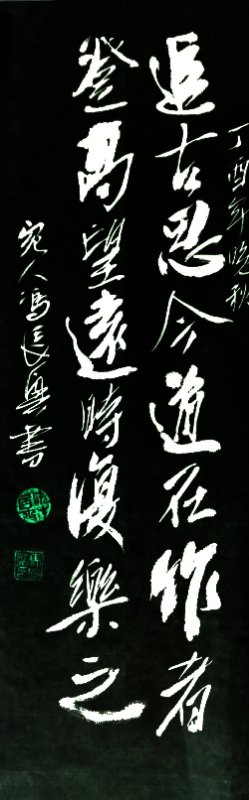 丁酉年晚秋
追古思今道在作者
登高望遠時復樂之
宛人馮長興書